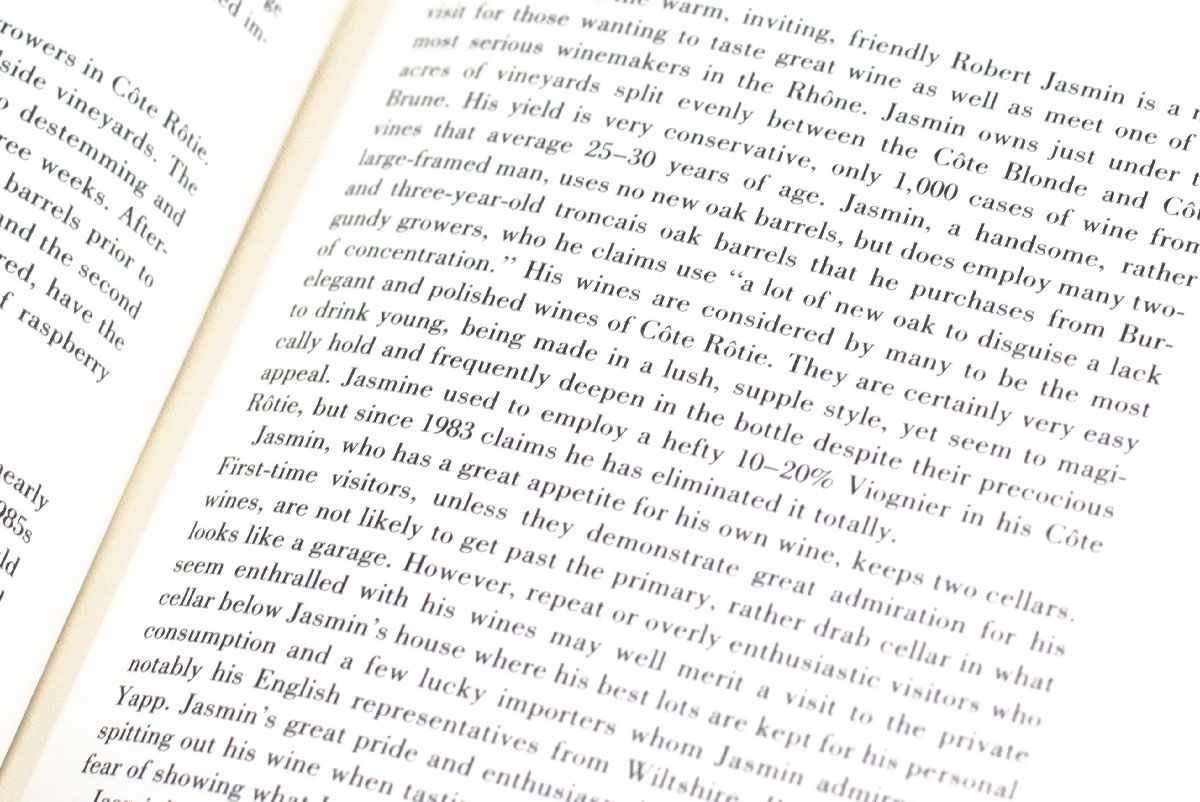 ge
ed im-
rowers in Côte Rôtie.
side vineyards. The
o destemming and
ree weeks. After-
barrels prior to
and the second
red, have the
f raspberry
nearly
985s
ld
the warm, inviting, friendly Robert Jasmin is a
visit for those wanting to taste great wine as well as meet one of
most serious winemakers in the Rhône. Jasmin owns just under
acres of vineyards split evenly between the Côte Blonde and Cô
Brune. His yield is very conservative, only 1,000 cases of wine from
vines that average 25–30 years of age. Jasmin, a handsome, rather
large-framed man, uses no new oak barrels, but does employ many two-
and three-year-old troncais oak barrels that he purchases from Bur-
gundy growers, who he claims use “a lot of new oak to disguise a lack
of concentration.” His wines are considered by many to be the most
elegant and polished wines of Côte Rôtie. They are certainly very easy
to drink young, being made in a lush, supple style, yet seem to magi-
cally hold and frequently deepen in the bottle despite their precocious
appeal. Jasmine used to employ a hefty 10–20% Viognier in his Côte
Rôtie, but since 1983 claims he has eliminated it totally.
Jasmin, who has a great appetite for his own wine, keeps two cellars.
First-time visitors, unless they demonstrate great admiration for his
wines, are not likely to get past the primary, rather drab cellar in what
looks like a garage. However, repeat or overly enthusiastic visitors who
seem enthralled with his wines may well merit a visit to the private
cellar below Jasmin’s house where his best lots are kept for his personal
consumption and a few lucky importers whom Jasmin admires
notably his English representatives from Wiltshire,
Yapp. Jasmin’s great pride and enthusiasm
spitting out his wine when tasting
fear of showing what